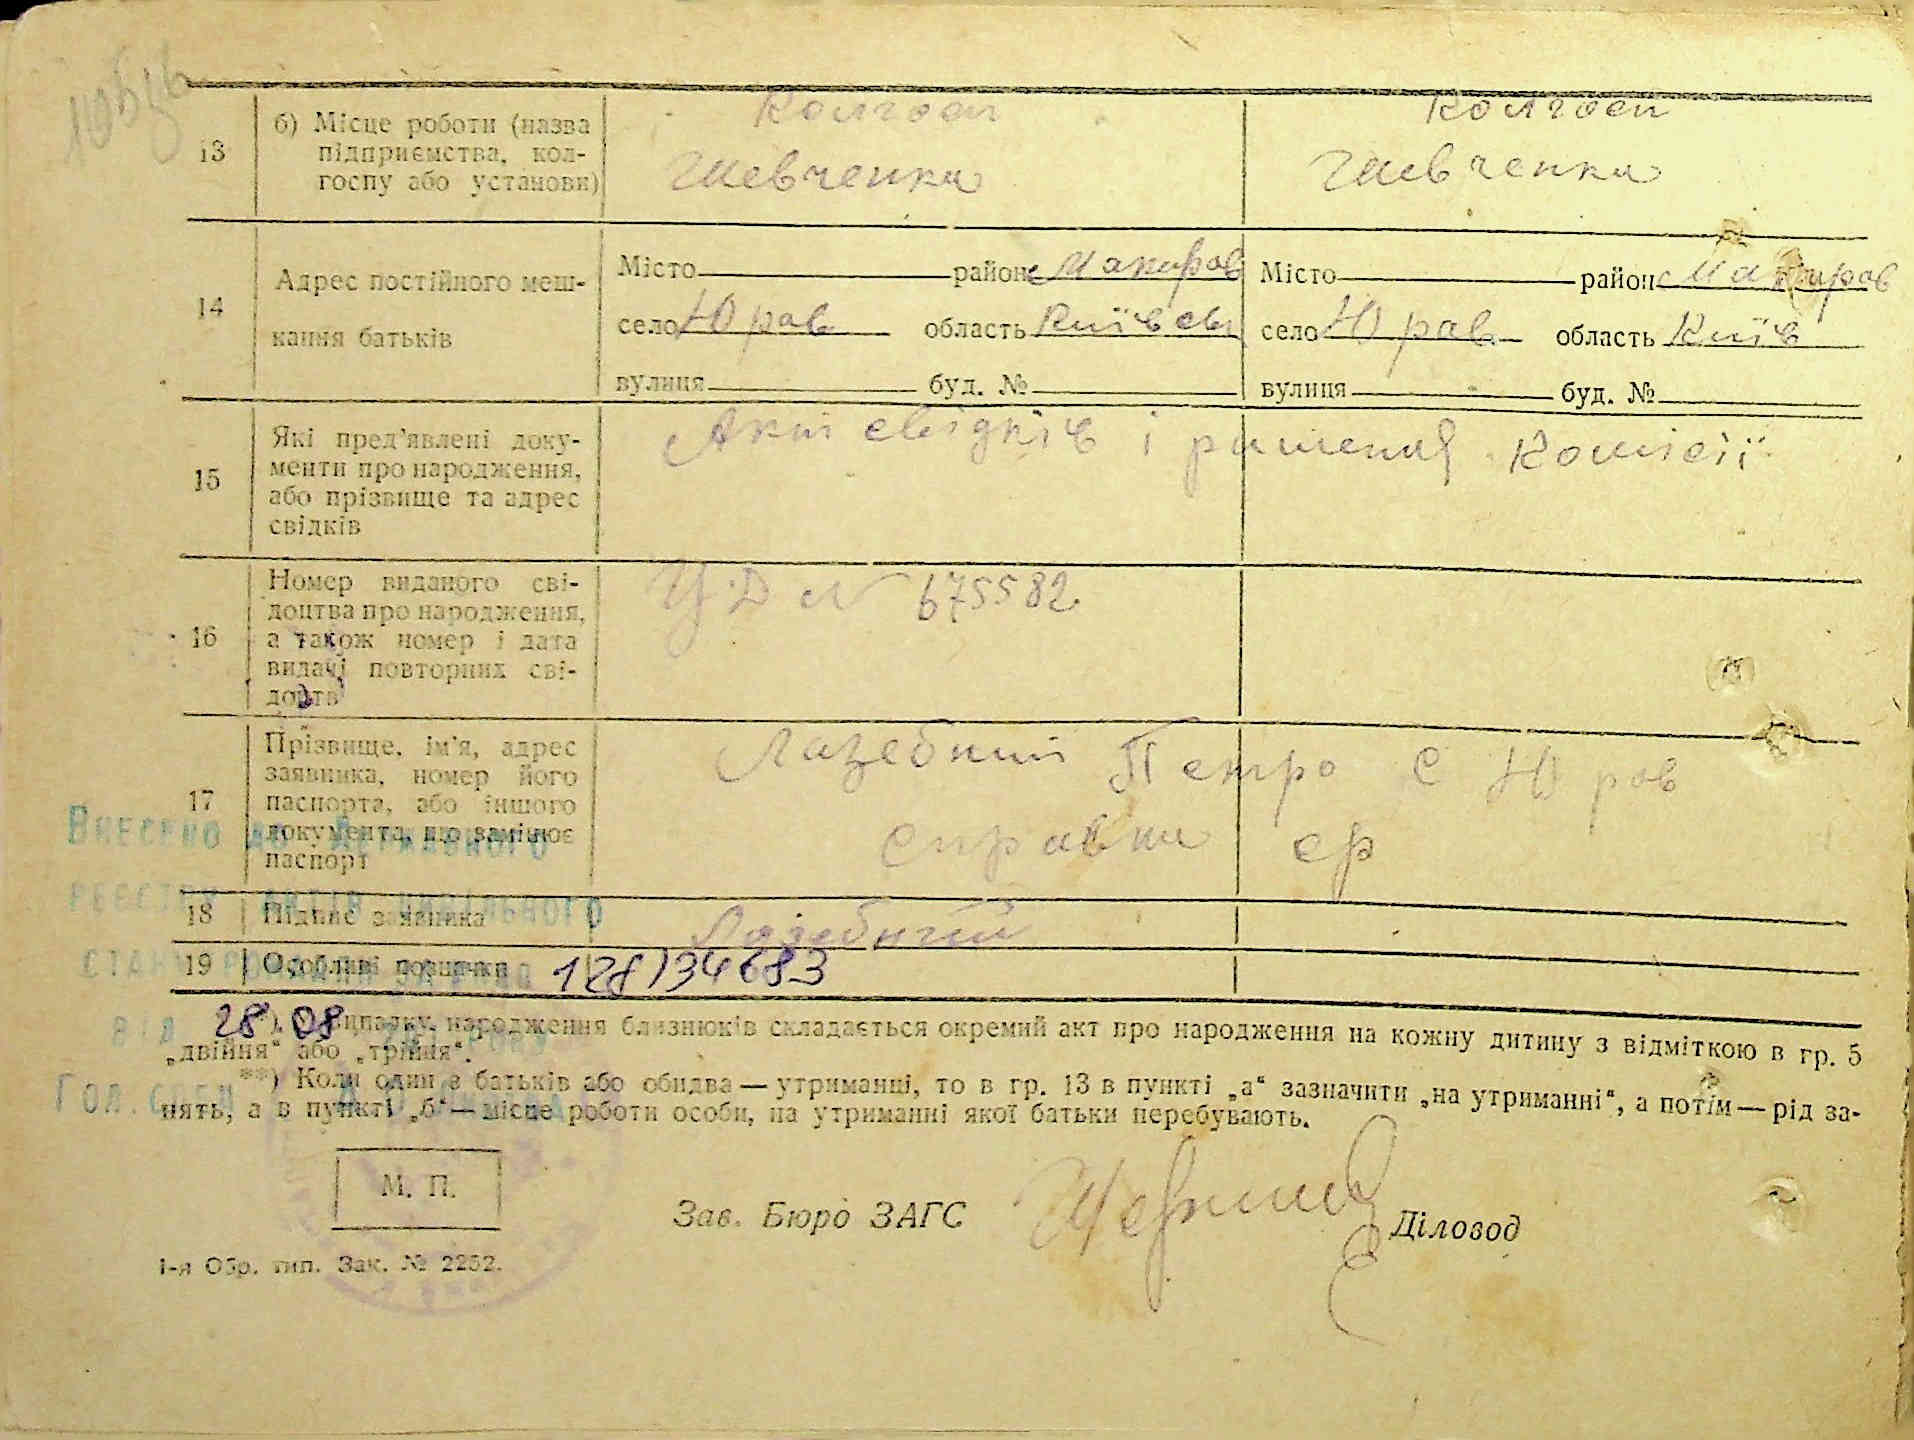 13
б) Місце роботи (назва
підприємства, кол-
госпу або установи)
Колгосп
Шевченка
Колгосп
Шевченка
14
Адрес постійного меш-
кання батьків
Місто район Макаров
село Юров область Київськ
вулиця буд. №
Місто район Макаров
село Юров область Київ
вулиця буд. №
15
Які пред'явлені доку-
менти про народження,
або прізвище та адрес
свідків
Акт свідків і рішення Комісії
16
Номер виданого сві-
доцтва про народження,
а також номер і дата
видачі повторних сві-
доцтв
N 675582
17
Прізвище, ім'я, адрес
заявника, номер його
паспорта, або іншого
документа, що замінює
паспорт
Лазебний Петро с Юров
справка ср
18
Підпис заявника
Лазебний
19
Особливі позначки
128/34683
Внесено до Державного
реєстру актів цивільного
28.08
*) У випадку народження близнюків складається окремий акт про народження на кожну дитину з відміткою в гр. 5
„двійня“ або „трійня“.
**) Коли один з батьків або обидва — утриманці, то в гр. 13 в пункті „а“ зазначити „на утриманні“, а потім — рід за-
нять, а в пункті „б“ — місце роботи особи, на утриманні якої батьки перебувають.
М. П.
Зав. Бюро ЗАГС
Діловод
1-я Обр. тип. Зак. № 2252.